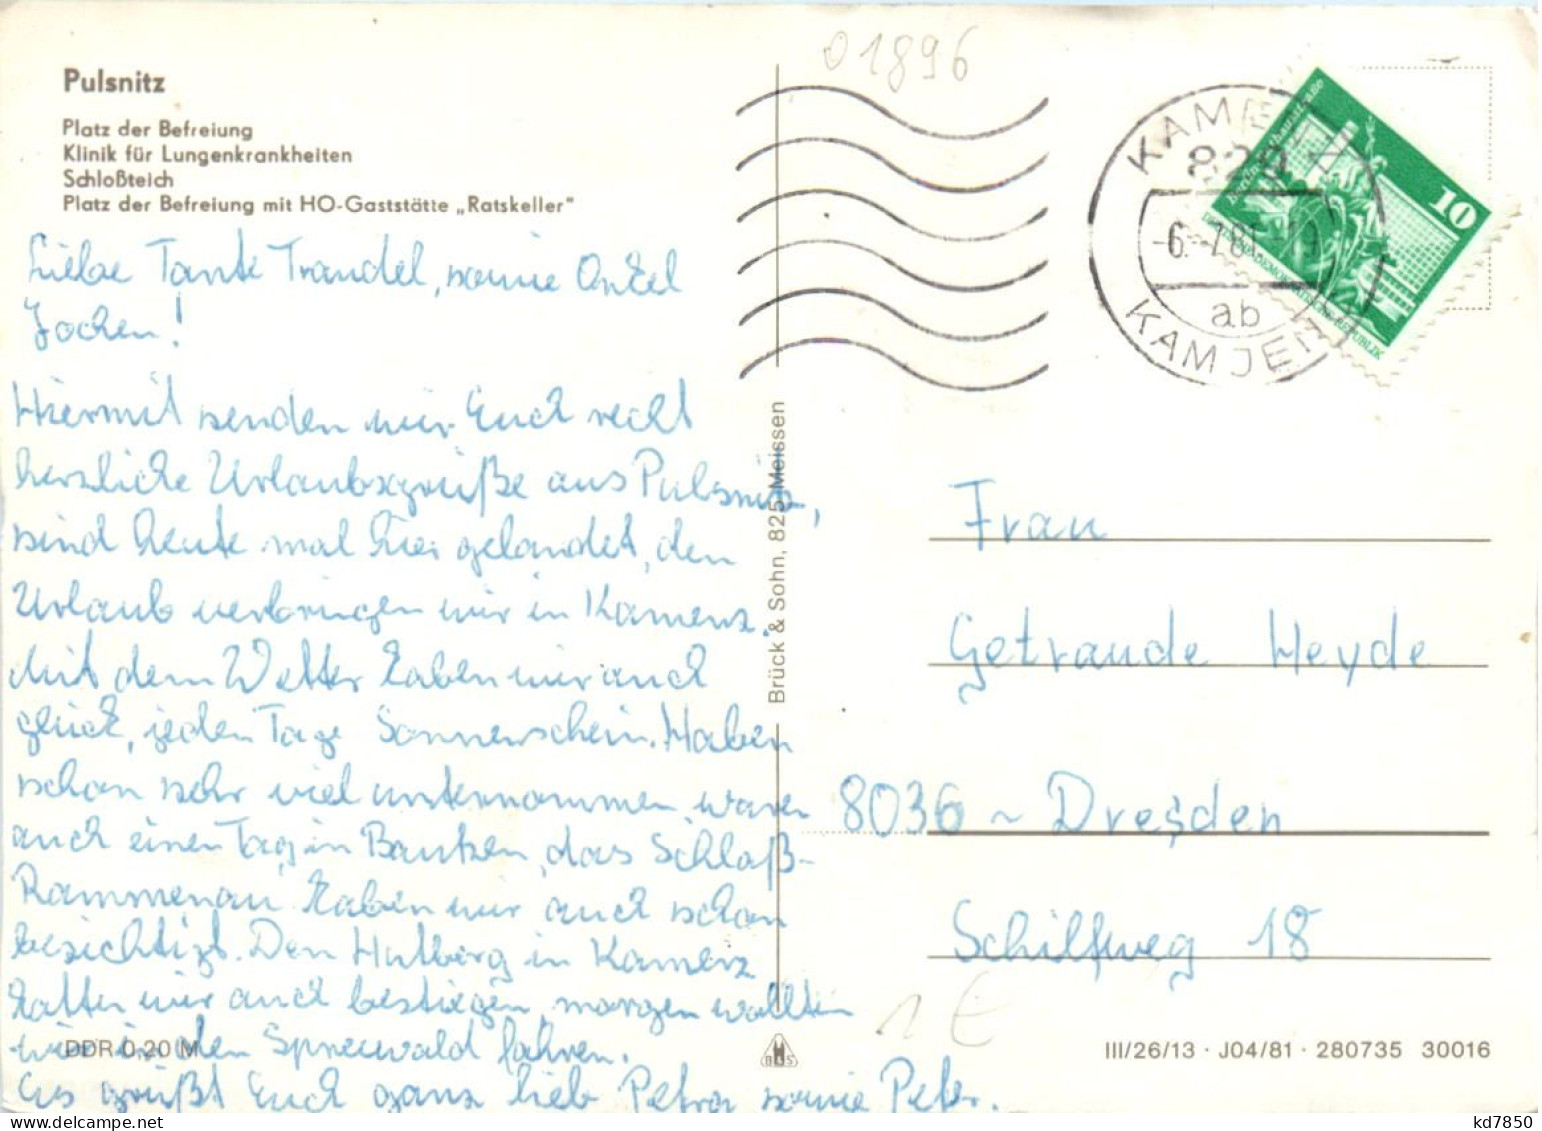 01896
Pulsnitz
Platz der Befreiung
Klinik für Lungenkrankheiten
Schloßteich
Platz der Befreiung mit HO-Gaststätte „Ratskeller"
Liebe Tante Traudel, sowie Onkel
Jochen!
Hiermit senden wir Euch recht
herzliche Urlaubsgrüße aus Pulsnitz,
sind heute mal hier gelandet, den
Urlaub verbringen wir in Kamenz.
Mit dem Wetter haben wir auch
glück, jeden Tag Sonnenschein. Haben
schon sehr viel unternommen waren
auch einen Tag in Bautzen, das Schloß-
Rammenau haben wir auch schon
besichtigt. Den Hutberg in Kamenz
hatten wir auch bestiegen, morgen wollten
wir in den Spreewald fahren.
Es grüßt Euch ganz lieb Petra sowie Peter.
DDR 0,20 M
Brück & Sohn, 825 Meissen
B & S
KAMENZ
829
-6.-7.81-19
ab
KAMJENC
10
DEUTSCHE DEMOKRATISCHE REPUBLIK
Frau
Getraude Heyde
8036 ~ Dresden
Schilfweg 18
1 €
III/26/13 · J04/81 · 280735 30016
kd7850